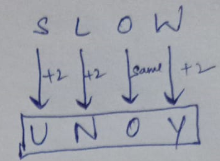 S L O W
+2 +2 same +2
U N O Y